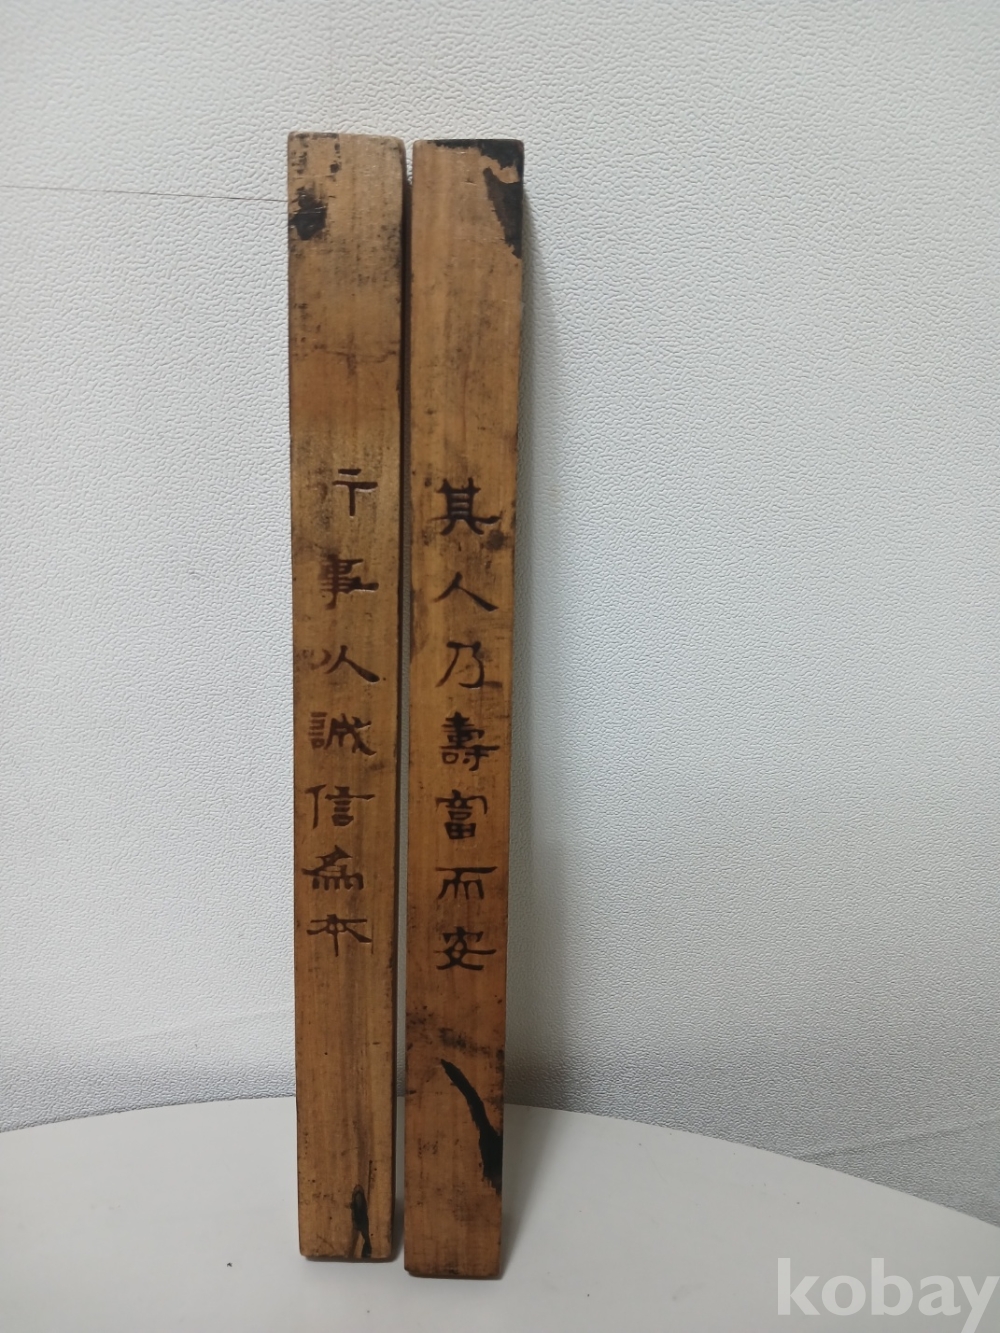 其人乃壽富而安
行事以誠信為本
kobay